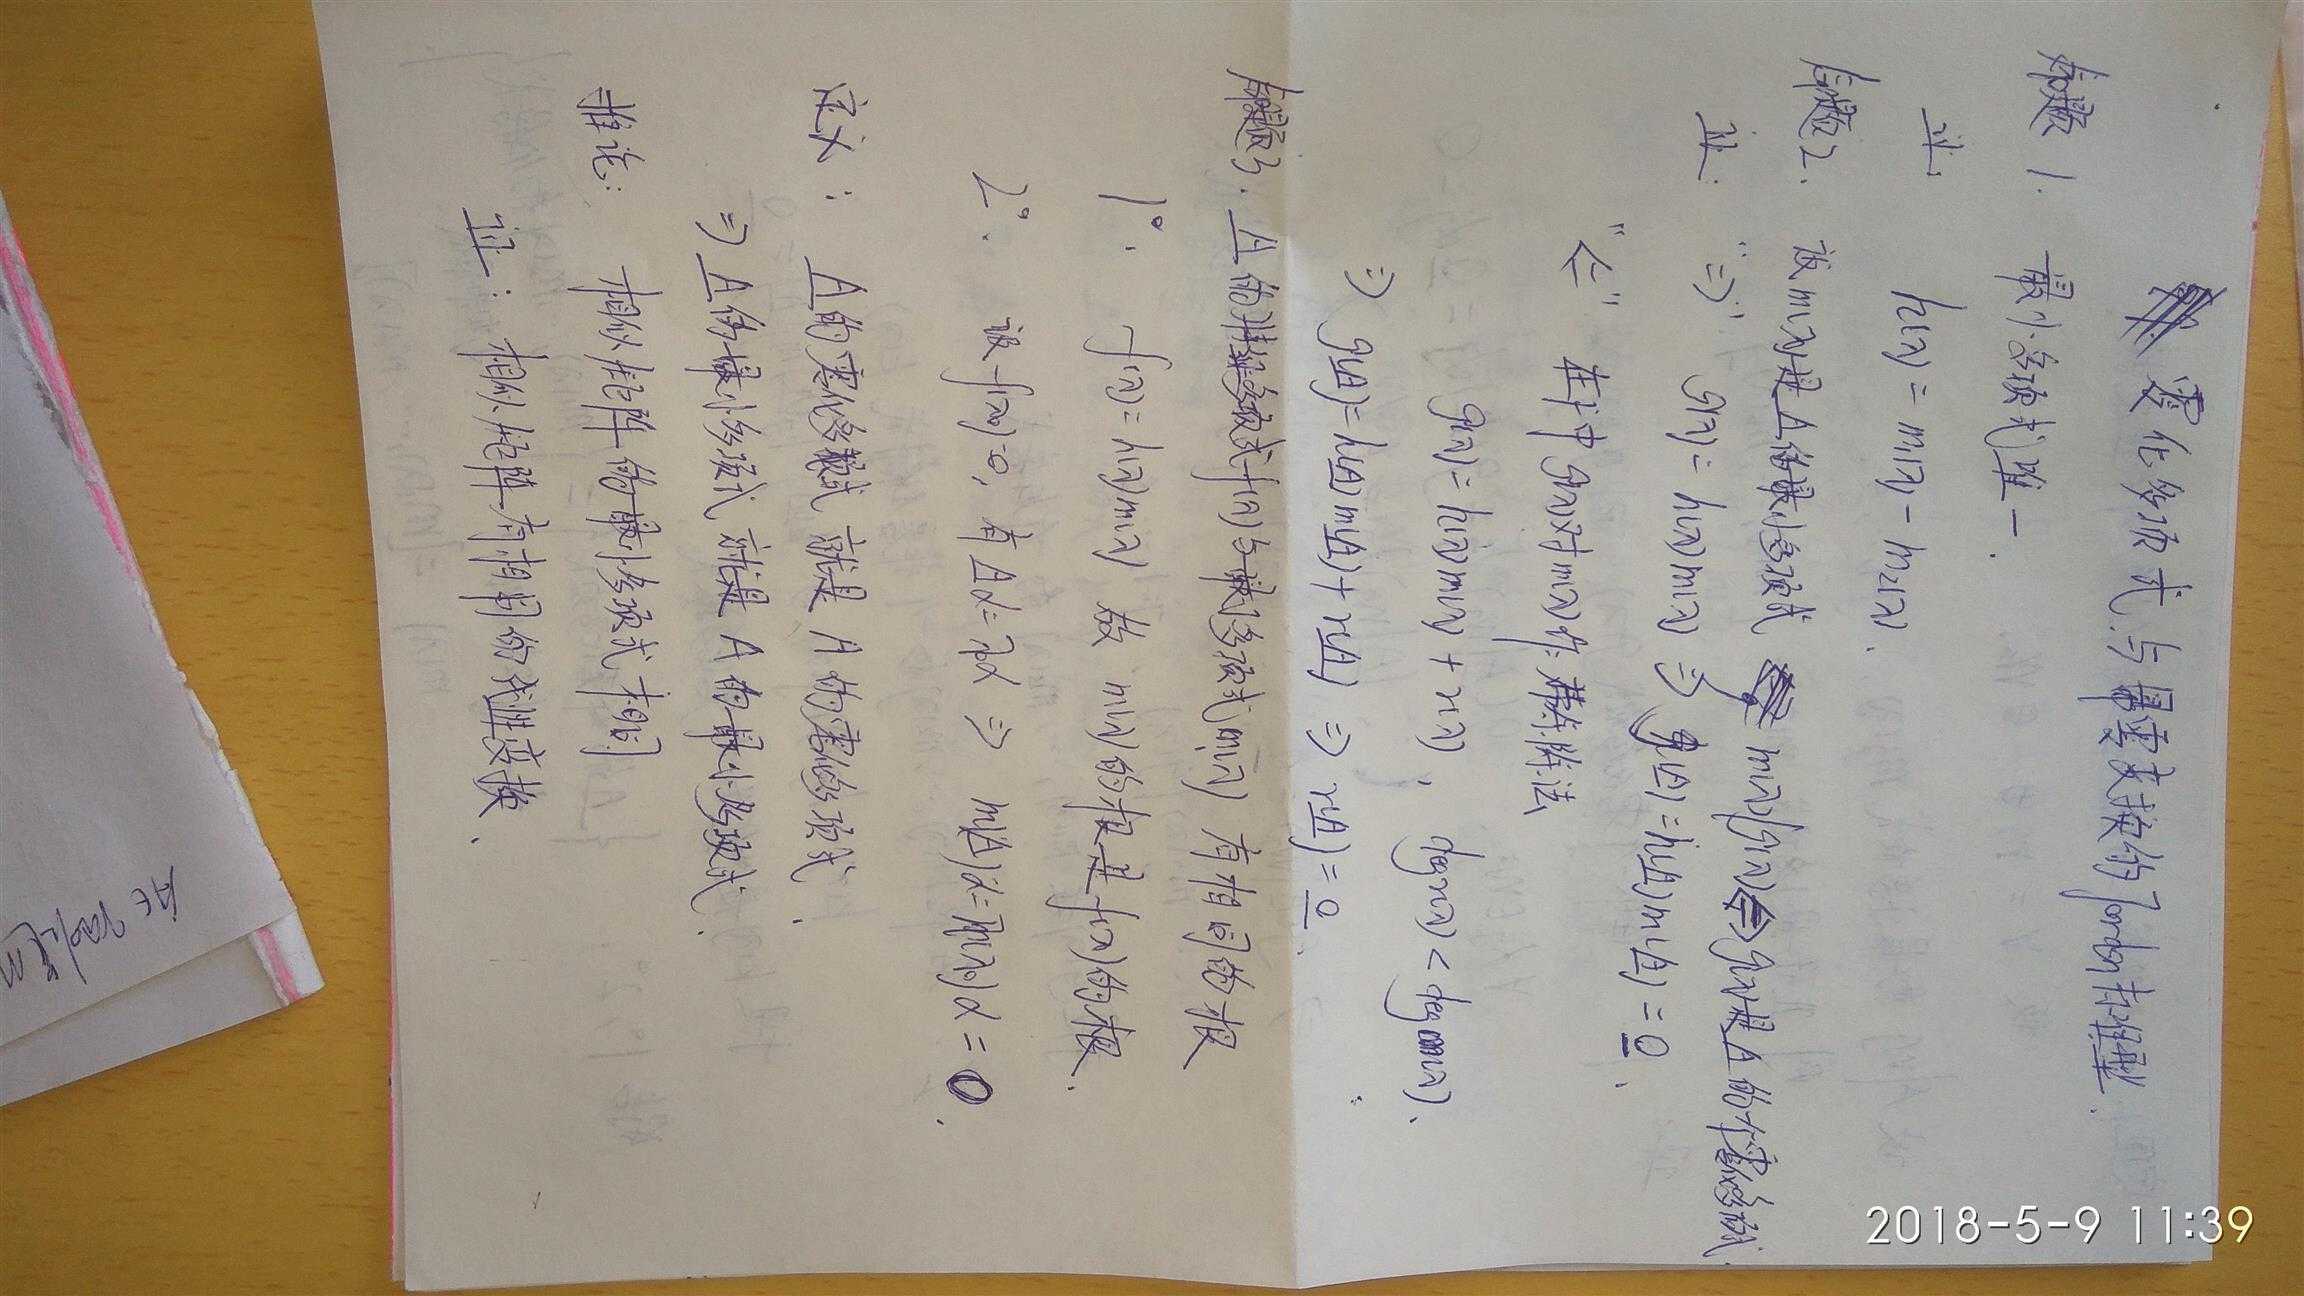 零化多项式与幂零变换的Jordan标准型.
命题1. 最小多项式唯一.
证. h(λ) = m₁(λ) - m₂(λ).
命题2. 设m(λ)是A的最小多项式 m(λ)|g(λ)⇔g(λ)是A的个零化多项式
证: "⇒" g(λ) = h(λ)m(λ) ⇒ g(A) = h(A)m(A) = 0.
"⇐" 在 中 g(λ)对m(λ)作 除法
g(λ) = h(λ)m(λ) + r(λ), deg r(λ) < deg m(λ).
⇒ g(A) = h(A)m(A) + r(A) ⇒ r(A) = 0.
命题3. A的特征多项式f(λ)与最小多项式m(λ)有相同的根
1°. f(λ) = h(λ)m(λ) 故 m(λ)的根是f(λ)的根.
2°. 设f(λ₀)=0, 有Aα=λ₀α ⇒ m(A)α = m(λ₀)α = 0.
定义: A的零化多项式就是A的零化多项式.
⇒ A的最小多项式就是A的最小多项式.
推论: 相似矩阵的最小多项式相同
证: 相似矩阵有相同的线性变换.
2018-5-9 11:39